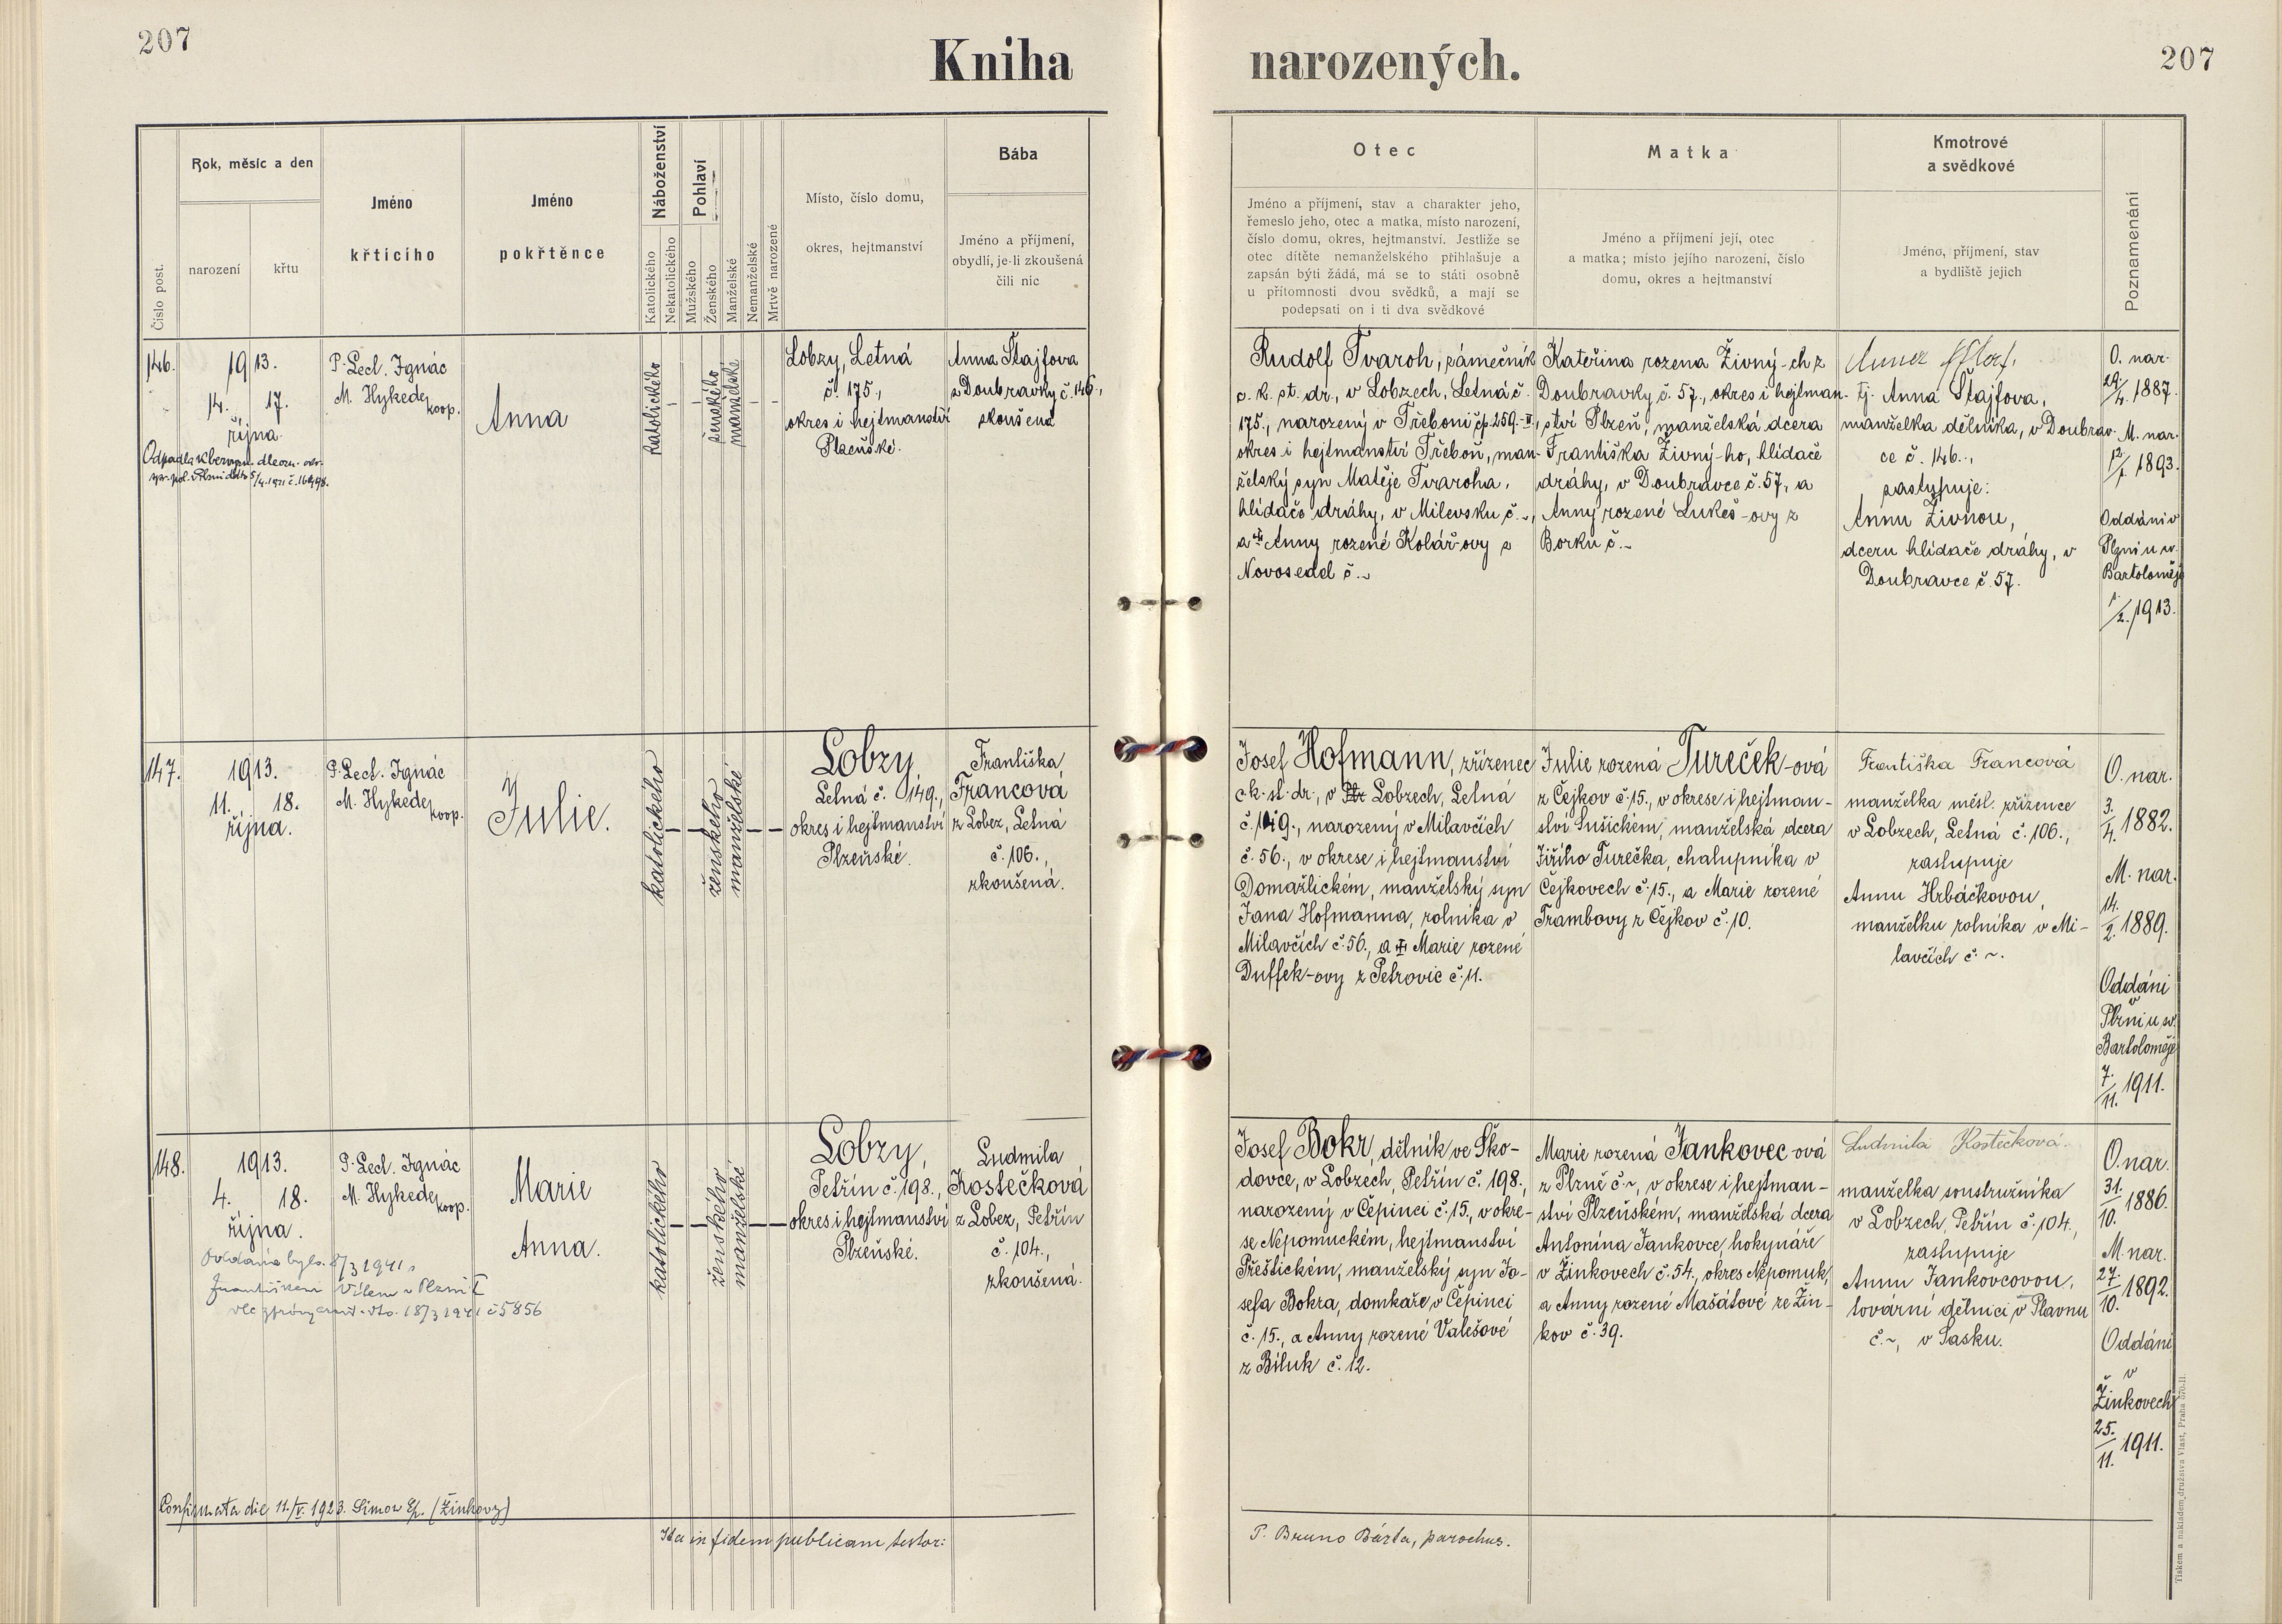 207
Kniha
narozených.
207
Číslo post.
Rok, měsíc a den
narození
křtu
Jméno
křticího
Jméno
pokřtěnce
Náboženství
Katolického
Nekatolického
Pohlaví
Mužského
Ženského
Manželské
Nemanželské
Mrtvě narozené
Místo, číslo domu,
okres, hejtmanství
Bába
Jméno a příjmení,
obydlí, je-li zkoušená
čili nic
Otec
Jméno a příjmení, stav a charakter jeho,
řemeslo jeho, otec a matka, místo narození,
číslo domu, okres, hejtmanství. Jestliže se
otec dítěte nemanželského přihlašuje a
zapsán býti žádá, má se to státi osobně
u přítomnosti dvou svědků, a mají se
podepsati on i ti dva svědkové
Matka
Jméno a příjmení její, otec
a matka; místo jejího narození, číslo
domu, okres a hejtmanství
Kmotrové
a svědkové
Jméno, příjmení, stav
a bydliště jejich
Poznamenání
146.
1913.
14. 17.
října.
P. Lect. Ignác
M. Hykede,
koop.
Anna
katolického
ženského
manželské
Lobzy, Letná
č. 175.,
okres i hejtmanství
Plzeňské.
Anna Štajfova
z Doubravky č. 146.,
zkoušená
Rudolf Tvaroh, zámečník
c. k. st. dr., v Lobzech, Letná č.
175., narozený v Třeboni čp. 259.-II.,
okres i hejtmanství Třeboň, man-
želský syn Matěje Tvaroha,
hlídače dráhy, v Milevsku č. ~,
a Anny rozené Kolář-ovy z
Novosedel č. ~
Kateřina rozena Živný-ch z
Doubravky č. 57., okres i hejtman-
ství Plzeň, manželská dcera
Františka Živný-ho, hlídače
dráhy, v Doubravce č. 57., a
Anny rozené Lukeš-ovy z
Borku č. ~
tj. Anna Štajfova,
manželka dělníka, v Doubrav-
ce č. 146.,
zastupuje:
Annu Živnou,
dceru hlídače dráhy, v
Doubravce č. 57.
O. nar.
29./4. 1887.
M. nar.
12./1. 1893.
Oddáni v
Plzni u sv.
Bartoloměje
1./2. 1913.
147.
1913.
11. 18.
října.
P. Lect. Ignác
M. Hykede,
koop.
Julie.
katolického
ženského
manželské
Lobzy
Letná č. 149.,
okres i hejtmanství
Plzeňské.
Františka
Francová
z Lobez, Letná
č. 106.,
zkoušená.
Josef Hofmann, zřízenec
c. k. st. dr., v Lobzech, Letná
č. 149., narozený v Milavčích
č. 56., v okrese i hejtmanství
Domažlickém, manželský syn
Jana Hofmanna, rolníka v
Milavčích č. 56., a Marie rozené
Duffek-ovy z Petrovic č. 11.
Julie rozená Tureček-ová
z Čejkov č. 15., v okrese i hejtman-
ství Sušickém, manželská dcera
Jiřího Turečka, chalupníka v
Čejkovech č. 15., a Marie rozené
Trambovy z Čejkov č. 10.
Františka Francová
manželka měst. zřízence
v Lobzech, Letná č. 106.,
zastupuje
Annu Hrbáčkovou,
manželku rolníka v Mi-
lavčích č. ~.
O. nar.
3./4. 1882.
M. nar.
14./2. 1889.
Oddáni
v
Plzni u sv.
Bartoloměje
7./11. 1911.
148.
1913.
4. 18.
října.
Oddána byla 8/3 1941 s
Františkem Vílem v Plzni I
P. Lect. Ignác
M. Hykede,
koop.
Marie
Anna.
katolického
ženského
manželské
Lobzy,
Petřín č. 198.,
okres i hejtmanství
Plzeňské.
Ludmila
Kostečková
z Lobez, Petřín
č. 104.,
zkoušená.
Josef Bokr, dělník ve Ško-
dovce, v Lobzech, Petřín č. 198.,
narozený v Čepinci č. 15., v okre-
se Nepomuckém, hejtmanství
Přeštickém, manželský syn Jo-
sefa Bokra, domkaře, v Čepinci
č. 15., a Anny rozené Valešové
z Biluk č. 12.
Marie rozená Jankovec-ová
z Plzně č. ~, v okrese i hejtman-
ství Plzeňském, manželská dcera
Antonína Jankovce, hokynáře
v Žinkovech č. 54., okres Nepomuk,
a Anny rozené Mašátové ze Žin-
kov č. 39.
Ludmila Kostečková.
manželka soustružníka
v Lobzech, Petřín č. 104.,
zastupuje
Annu Jankovcovou,
tovární dělnici v Plavnu
č. ~, v Sasku.
O. nar.
31./10. 1886.
M. nar.
27./10. 1892.
Oddáni
v
Žinkovech
25./11. 1911.
Confirmata die 11./V. 1923. Simon Ep. (Žinkovy)
Ita in fidem publicam testor:
P. Bruno Bárta, parochus.
Tiskem a nakladem družstva Vlast, Praha 570-II.